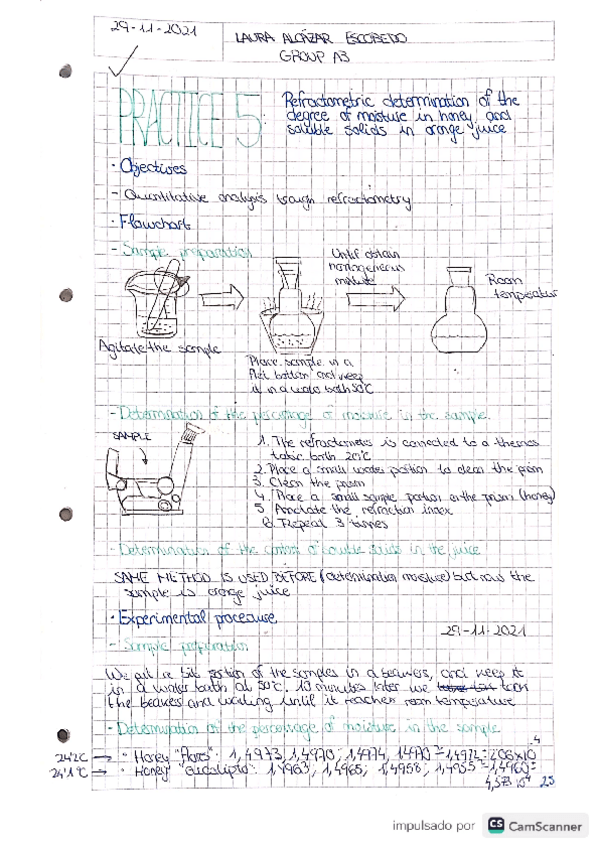 29-11-2021
LAURA ALCÁZAR ESCOBEDO
GROUP A3
PRACTICE 5:
Refractometric determination of the
degree of moisture in honey, and
soluble solids in orange juice
· Objectives
- Quantitative analysis trough refractometry
· Flowchart
- Sample preparation
Agitate the sample
Place sample in a
flat bottom and keep
it in a water bath 50°C
Until obtain
homogeneous
mixture
Room
temperatur
- Determination of the percentage of moisture in the sample
SAMPLE
1. The refractometer is conected to a thermos
tatic bath 20°C
2. Place a small water portion to clean the prism
3. Clean the prism
4. Place a small sample portion on the prism (honey)
5. Annotate the refraction index
6. Repeat 3 times
- Determination of the content of soluble solids in the juice
SAME METHOD IS USED BEFORE (determination moisture) but now the
sample is orange juice
· Experimental procedure
29-11-2021
- Sample preparation
We put a bit portion of the samples in a beakers, and keep it
in a water bath at 50°C. 10 minutes later we took
the beakers and waiting until it reaches room temperature
- Determination of the percentage of moisture in the sample
24'2°C → · Honey "flores": 1,4973, 1,4970; 1,4974, 1,4970 = 1,4972 ± 2,06×10⁻⁴
24'1°C → · Honey "eucalipto": 1,4963; 1,4965; 1,4958; 1,4955 = 1,4960 ±
25
impulsado por CS CamScanner